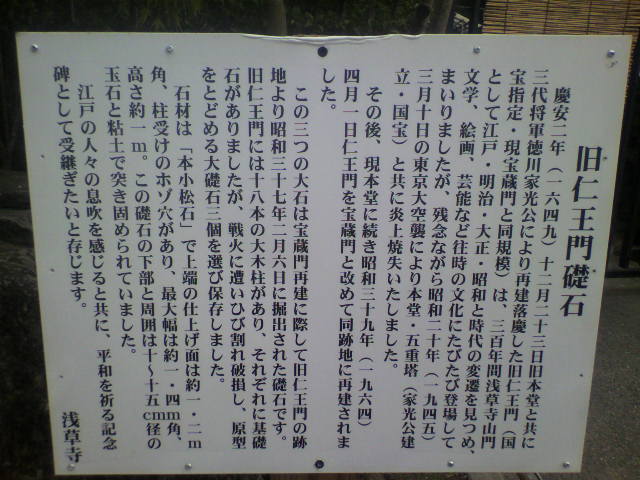 旧仁王門礎石
慶安二年（一六四九）十二月二十三日旧本堂と共に
三代将軍徳川家光公により再建落慶した旧仁王門（国
宝指定・現宝蔵門と同規模）は、三百年間浅草寺山門
として江戸・明治・大正・昭和と時代の変遷を見つめ、
文学、絵画、芸能など往時の文化にたびたび登場して
まいりましたが、残念ながら昭和二十年（一九四五）
三月十日の東京大空襲により本堂・五重塔（家光公建
立・国宝）と共に炎上焼失いたしました。
その後、現本堂に続き昭和三十九年（一九六四）
四月一日仁王門を宝蔵門と改めて同跡地に再建されま
した。
この三つの大石は宝蔵門再建に際して旧仁王門の跡
地より昭和三十七年二月六日に掘出された礎石です。
旧仁王門には十八本の大木柱があり、それぞれに基礎
石がありましたが、戦火に遭いひび割れ破損し、原型
をとどめる大礎石三個を選び保存しました。
石材は「本小松石」で上端の仕上げ面は約一・二m
角、柱受けのホゾ穴があり、最大幅は約一・四m角、
高さ約一m。この礎石の下部と周囲は十〜十五cm径の
玉石と粘土で突き固められていました。
江戸の人々の息吹を感じると共に、平和を祈る記念
碑として受継ぎたいと存じます。
浅草寺